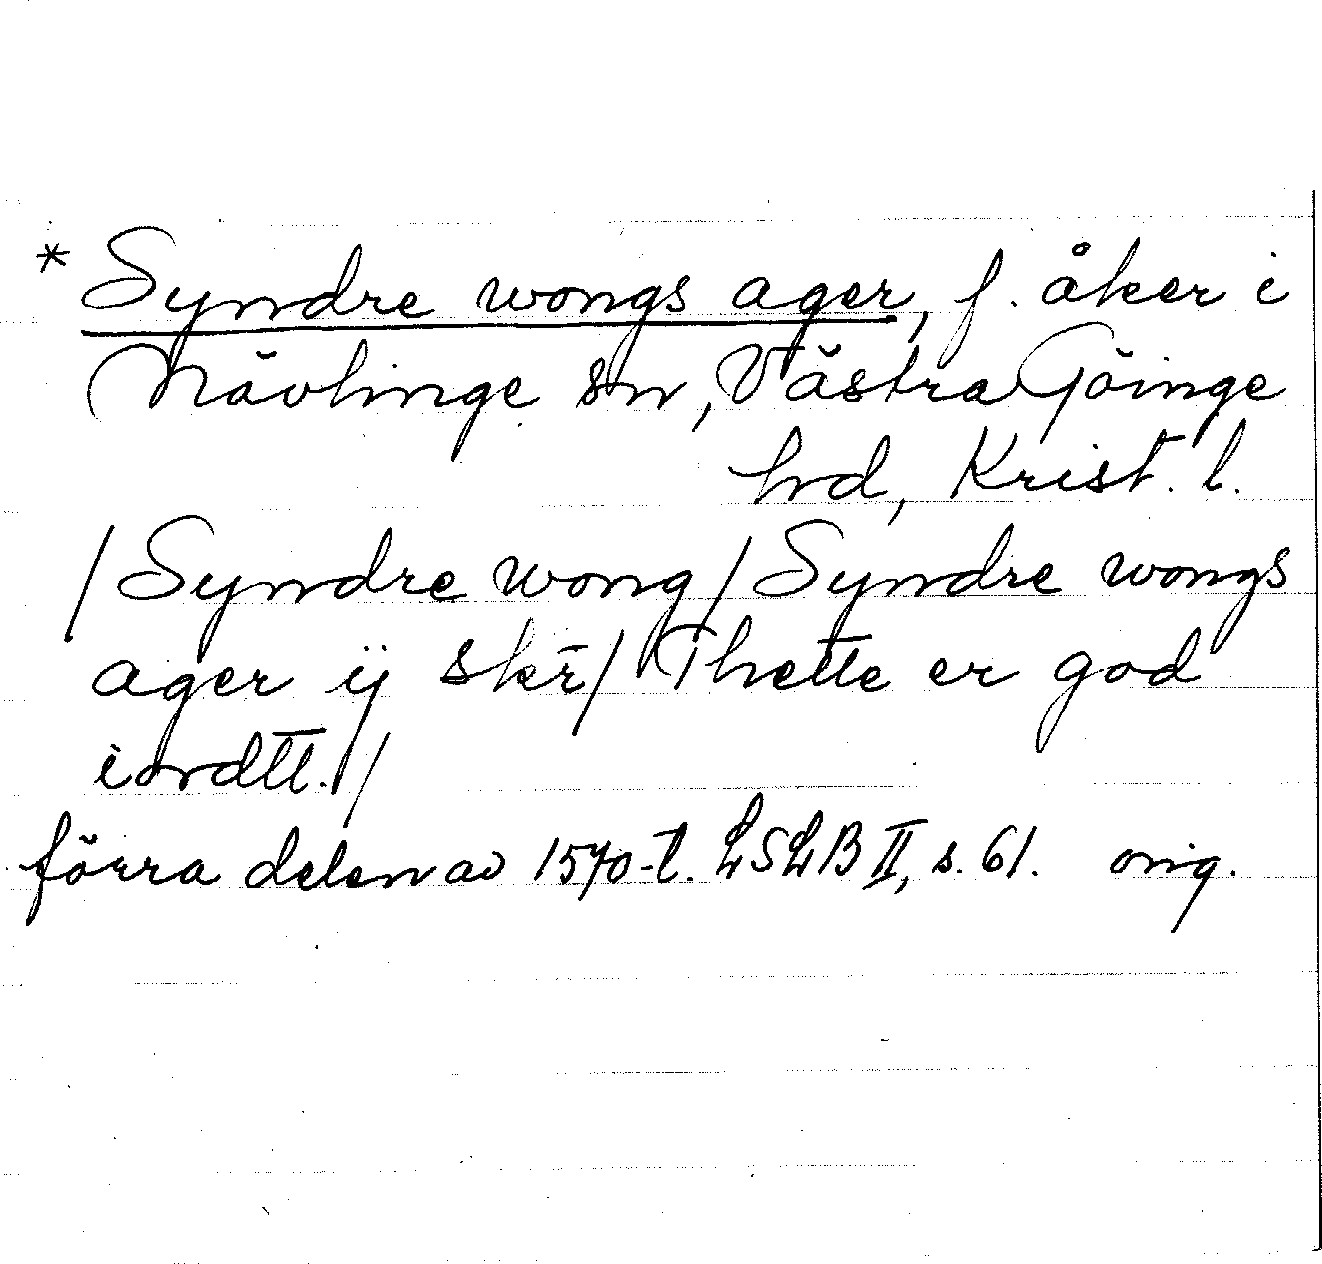 * Syndre wongs ager, f. åker i
Nävlinge sn, Västra Göinge
hd, Krist. l.
/ Syndre wong / Syndre wongs
ager ij skr̄ / Thette er god
iordtt. /
förra delen av 1570-t. LSLB II, s. 61. orig.